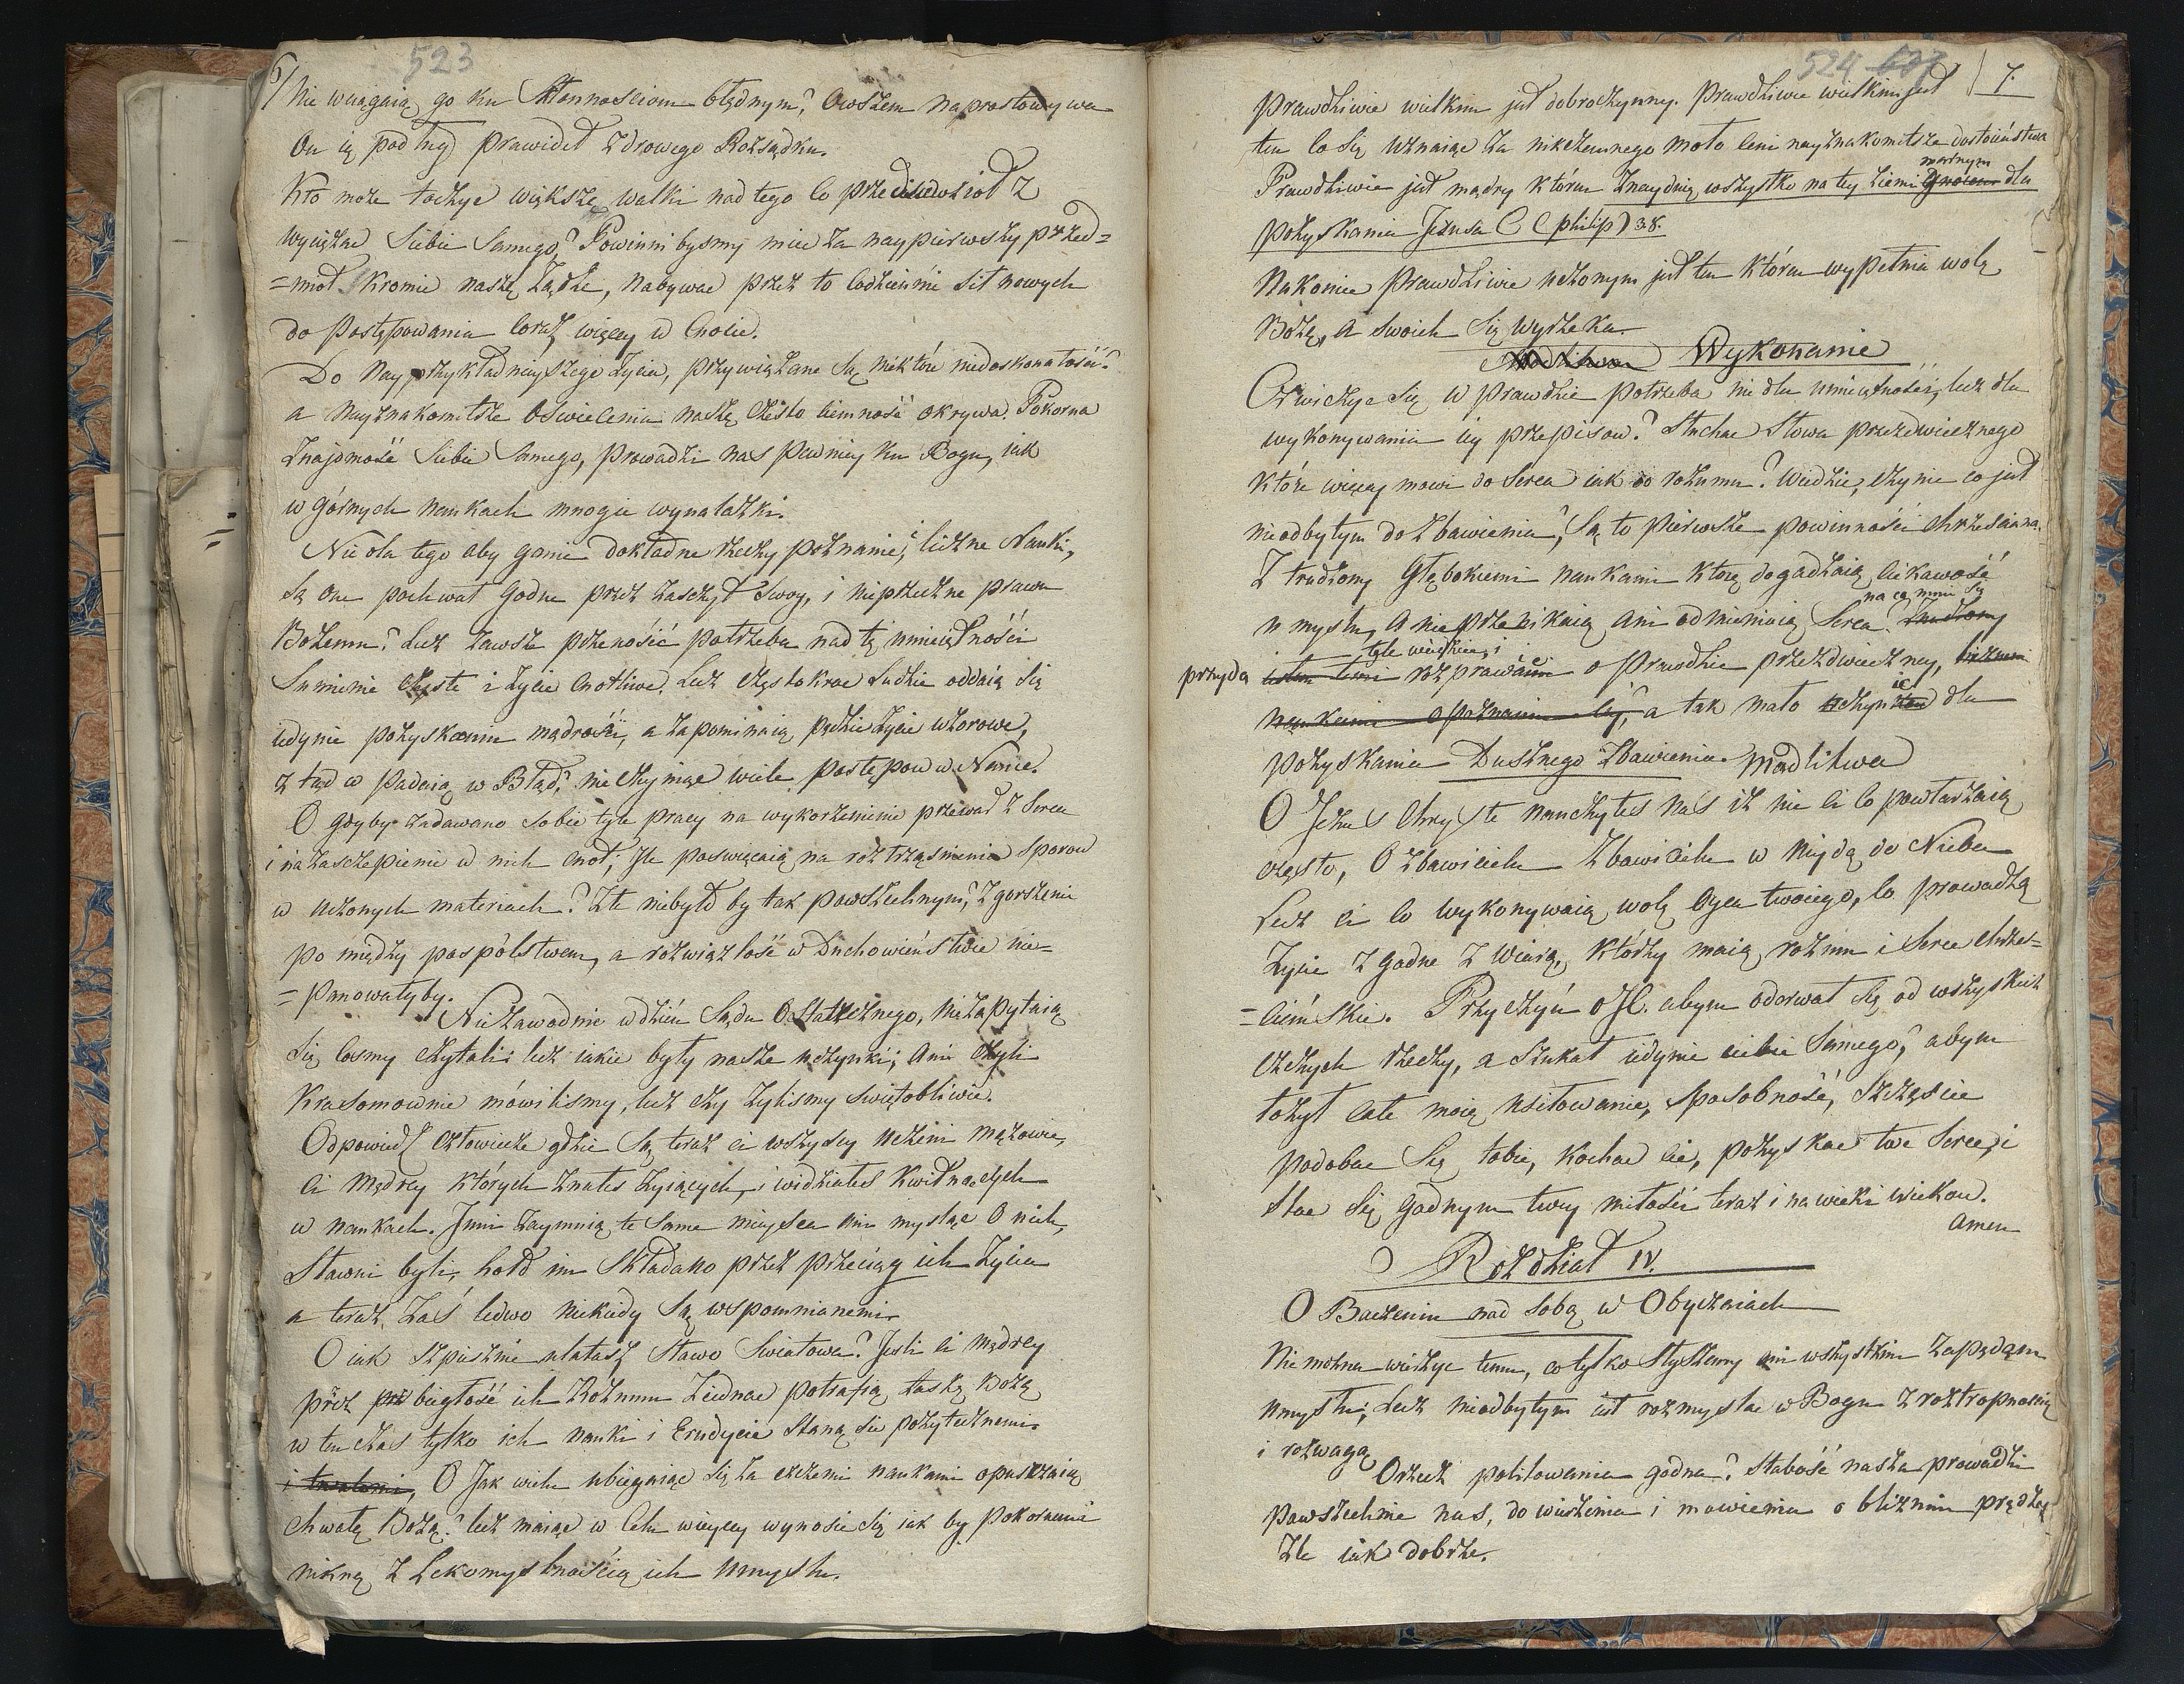 523
6/ Nie wciągaią go ku Skłonnosciom błędnym? Owszem naprostowywa
On ią pod tryb prawideł zdrowego Rozsądku.
Kto może toczyc większe walki nad tego co przedsiewziął z
wyciężac Siebie Samego? Powinni bysmy miec za naypierwszy przed=
=miot Skromic naszę Żądze, nabywac przez to codzienńie sił nowych
do postępowania coraz więcey w Cnocie.
Do nayprzykładnieyszego Życia, przywiązane Są niektóre niedoskonałości?
a nayznakomitsze Oswiecenia naszę często ciemność okrywa. Pokorna
Znajomość Siebie Samego, prowadzi nas pewniey ku Bogu, iak
w górnych naukach mnogie wynalazki.
Nie dla tego aby ganic dokładne rzeczy poznanie, i liczne Nauki,
Są one pochwał Godne przez zaszczyt swoy, i nieprzeczne prawu
Bożemu? Lecz zawsze przenośić potrzeba nad tę umieiętności
Sumienie czyste i Życie Cnotliwe. Lecz częstokroc Ludzie oddaią Się
iedynie pozyskaniu mądrości, a zapominaią pędzic życie wzorowe,
z tąd wpadaią w Błąd, nie czyniąc wiele postępow w Nauce.
O gdyby zadawano sobie tyle pracy na wykorzenienie przewad z Serca
i na zaszczepienie w nich cnot; Ile poswięcaią na roztrząsnienia Sporow
w uczonych materiach? Złe niebyło by tak powszechnym, Zgorszenie
po między pospólstwem, a rozwiązłość w Duchowieństwie nie=
=panowałyby.
Niezawodnie w dzień Sądu Ostatecznego, nie zapytaią
Się cosmy czytali: lecz iakie były nasze uczynki; Ani czyli
Krasomownie mówilismy, lecz czy żylismy świętobliwie.
Odpowiedz człowiecze gdzie Są teraz ci wszyscy uczeni mężowie,
ci mądrcy których znałes żyiących, i widziałes kwitnących
w naukach. Inni zaymuią te Same mieysca nie mysląc O nich,
Sławni byli, hołd im Składano przez przeciąg ich Życia
a teraz, zaś ledwo niekiedy Są wspomnianemi.
O iak szpiesznie ulatasz Sławo Swiatowa? Jesli ci mądrcy
przez biegłość ich Rozumu Ziednac potrafią łaskę Bożą
w ten czas tylko ich nauki i Erudycie staną się pożytecznemi.
i trwałemi, O Jak wielu ubiegaiąc się za czczemi naukami opuszczaią
chwałę Bożą? lecz maiąc w Celu więcey wynosic się iak by pokornemi
nikną z Lekomyslnością ich umysłu.
524 607 7.
prawdziwie wielkim jest dobroczynny. prawdziwie wielkim jest
ten co się uznaiąc za nikczemnego mało ceni nayznakomitsze dostoieństwa
marnym
Prawdziwie jest mądry którem Znaydnię wszystko na tey ziemi Gnoiem dla
pożyskania Jezusa C (philip) 38.
Nakoniec prawdziwie uczonym jest ten który wypełnia wolę
Bożę, a swoich się wyrzeka.
Modlitwa Wykonanie
Cwiczyc się w prawdzie potrzeba nie dla umieiętności, lecz dla
wykonywania iey przepisow? Słuchac Słowa przedwiecznego
które więcey mowi do Serca iak do rozumu? Wiedziec, czynic co jest
nieodbytym do zbawienia, Są to pierwsze powinności chrześcianna.
Z trudzony Głębokiemi naukami którę dogadzaią ciekawość
na co mnie się
umysłu, a nie przenikaią ani odmieniaią Serca? trudzony
tyle wielkiemi
przyda rozprawami o prawdzie przedwieczney, licznemi
naukami o poznaniu iey, a tak mało uczynic dla
pożyskania Dusznego zbawienia. Modlitwa
O Jezu Chryste nauczyłes nas iż nie ci co powtarzaią
często, O Zbawicielu Zbawicielu wniydą do Nieba
Lecz ci co wykonywaią wolę Oyca twoiego, co prowadzą
Życie zgodne z Wiarą, którzy maią rozum i Serce chrzes=
=ciańskie. Przyczyń O JC. abym oderwał się od wszyskich
czczych rzeczy, a Szukał iedynie ciebie Samego, abym
łożył całe moię usiłowanie, sposobność, szczęscie
podobac Się tobie, kochac cie, pozyskac twe Serce, i
stac się godnym twey miłości teraz i na wieki wiekow.
Amen
Rozdział IV.
O Baczeniu nad sobą w Obyczaiach
Nie można wierzyc temu, co tylko słyszemy ani wszystkim zapędom
umysłu, Lecz nieodbytym iest rozmyslac w Bogu z roztropnoscią
i rozwagą
Orzecz politowania godna? Słabość nasza prowadzi
powszechnie nas, do wierzenia i mowienia o bliznim prędzey
Złe iak dobrze.